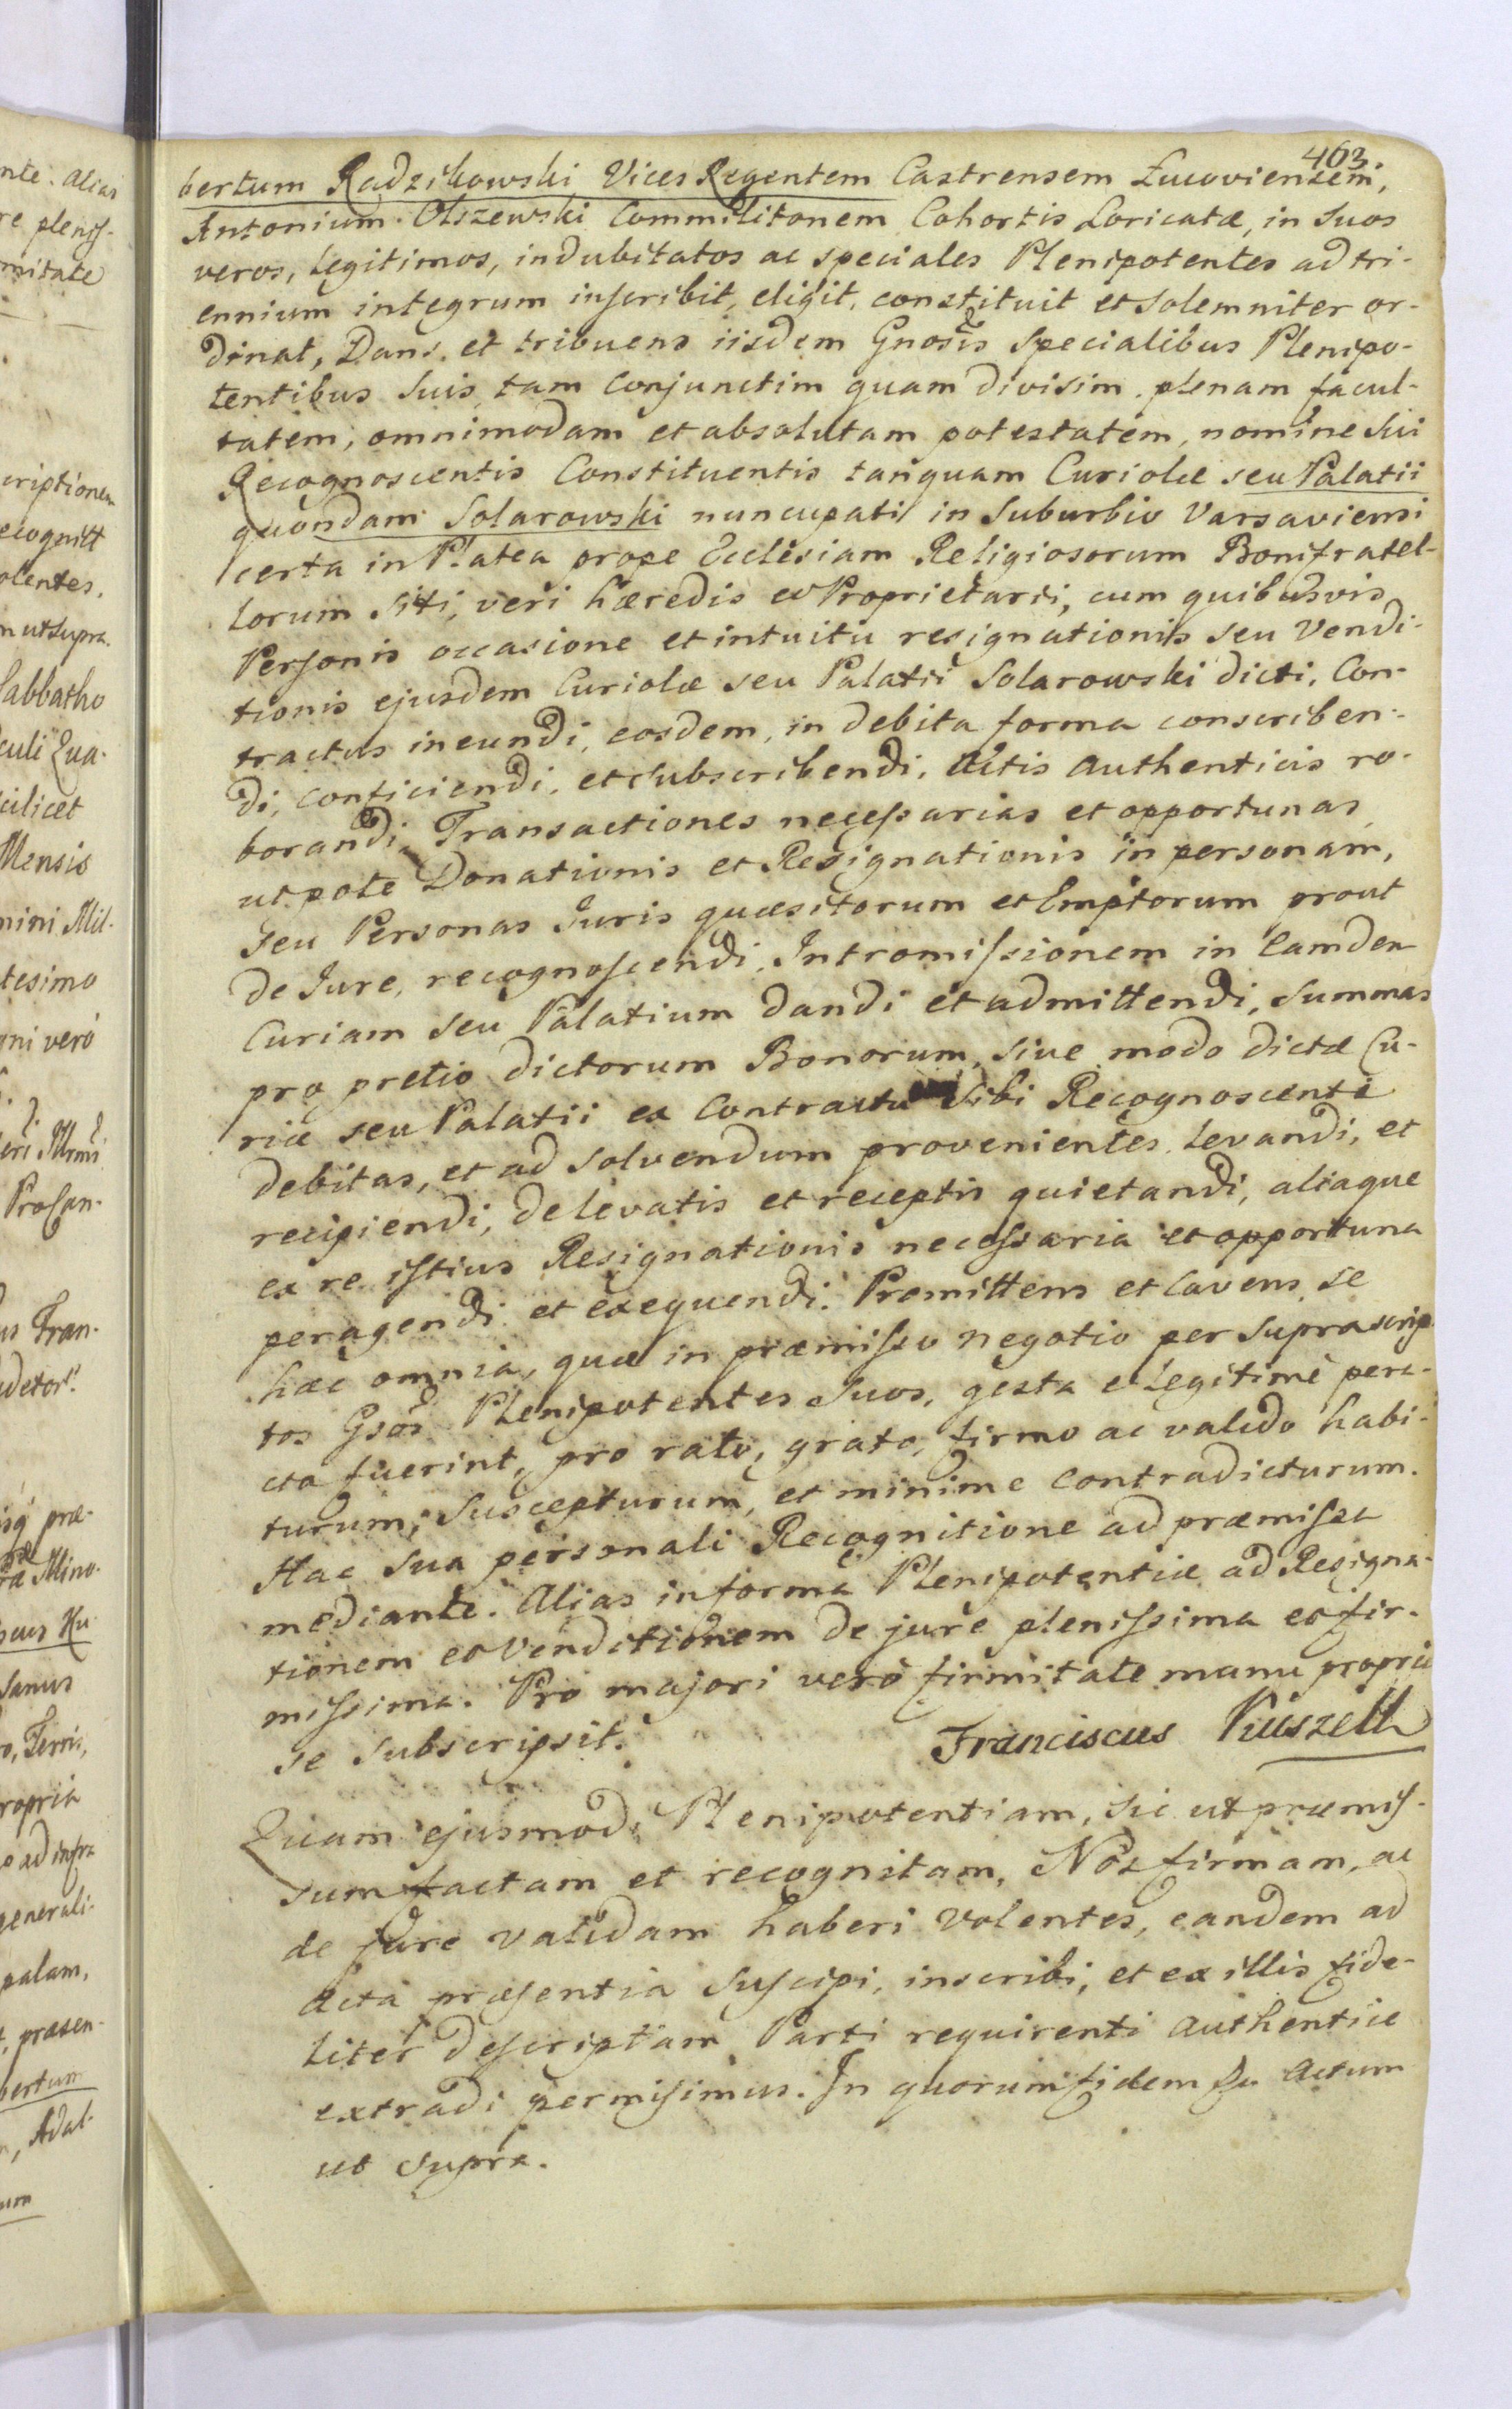 463.
bertum Radzikowski Vices Regentem Castrensem Łucoviensem,
Antonium Olszewski Commilitonem Cohortis Loricatæ, in Suos
veros, legitimos, indubitatos ac speciales Plenipotentes ad tri-
ennium integrum inscribit, eligit, constituit et solemniter or-
dinat, Dans, et tribuens iisdem Gnosis Specialibus Plenipo-
tentibus Suis, tam conjunctim quam divisim, plenam facul-
tatem, omnimodam et absolutam potestatem, nomine Sui
Recognoscentis Constituentis tanquam Curiolæ seu Palatii
quondam Solarowski nuncupati in Suburbio Varsaviensi
certa in Platea prope Ecclesiam Religiosorum Bonifratel-
lorum siti, veri hæredis et Proprietarii, cum quibusvis
Personis occasione et intuitu resignationis seu Vendi-
tionis ejusdem Curiolæ seu Palatii Solarowski dicti, Con-
tractus ineundi, eosdem, in debita forma conscriben-
di, conficiendi, et subscribendi, Actis Authenticis ro-
borandi, Transactiones necessarias et opportunas
utpote Donationis et Resignationis in personam,
seu Personas Juris quæsitorum et Emptorum prout
de Jure, recognoscendi, Intromissionem in Eamden
Curiam seu Palatium dandi et admittendi, summas
pro pretio dictorum Bonorum, sive modo dictæ Cu-
riæ seu Palatii ex Contractu Sibi Recognoscenti
debitas, et ad solvendum provenientes, levandi, et
recipiendi, de levatis et receptis quietandi, aliaque
ex re istius Resignationis necessaria et opportuna
peragendi et exequendi. Promittens et Cavens, se
hæc omnia, quæ in præmisso negotio per suprascrip-
tos Gsos Plenipotentes Suos, gesta et legitime pera-
cta fuerint, pro rato, grato, firmo ac valido habi-
turum, suscepturum, et minime contradicturum.
Hac sua personali Recognitione ad præmissa
mediante. Alias in forma Plenipotentiæ ad Resigna-
tionem et Venditionem de jure plenissima et fir-
missima. Pro majori vero firmitate manu propria
se subscripsit.
Franciscus Kuszell
Quam ejusmodi Plenipotentiam, sic ut præmis-
sum factam et recognitam, Nos firmam, ac
de jure validam haberi volentes, eandem ad
Acta præsentia suscipi, inscribi, et ex illis fide-
liter descriptam Parti requirenti authentice
extradi permisimus. In quorum fidem Actum
ut supra.